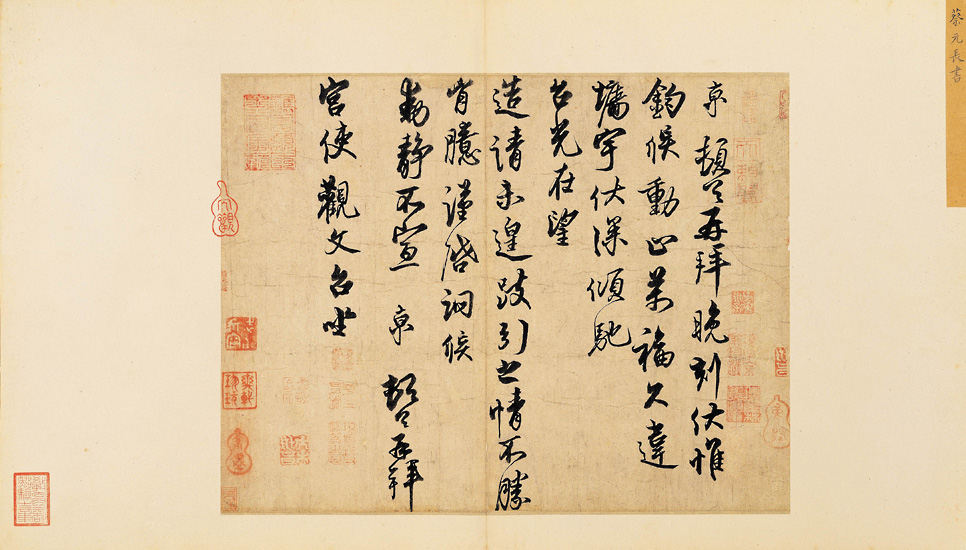 蔡元長書
京頓首再拜晚刻伏惟
鈞候動止萬福久違
墻宇伏深傾馳
台光在望
造請未遑跂引之情不勝
胷臆謹啓詗候
動靜不宣京頓首再拜
宮使觀文台坐